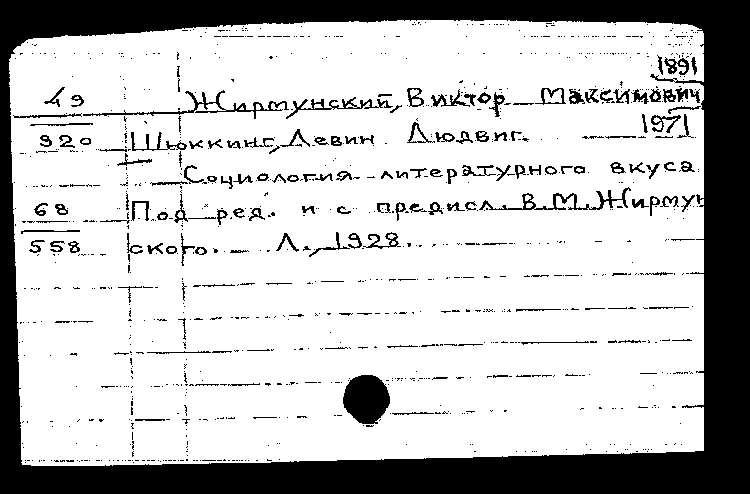 1891
49 Жирмунский, Виктор Максимович,
1971
920 Шюккинг, Левин Людвиг.
Социология литературного вкуса
68 Под ред. и с предисл. В.М. Жирмун
558 ского. – Л., 1928.